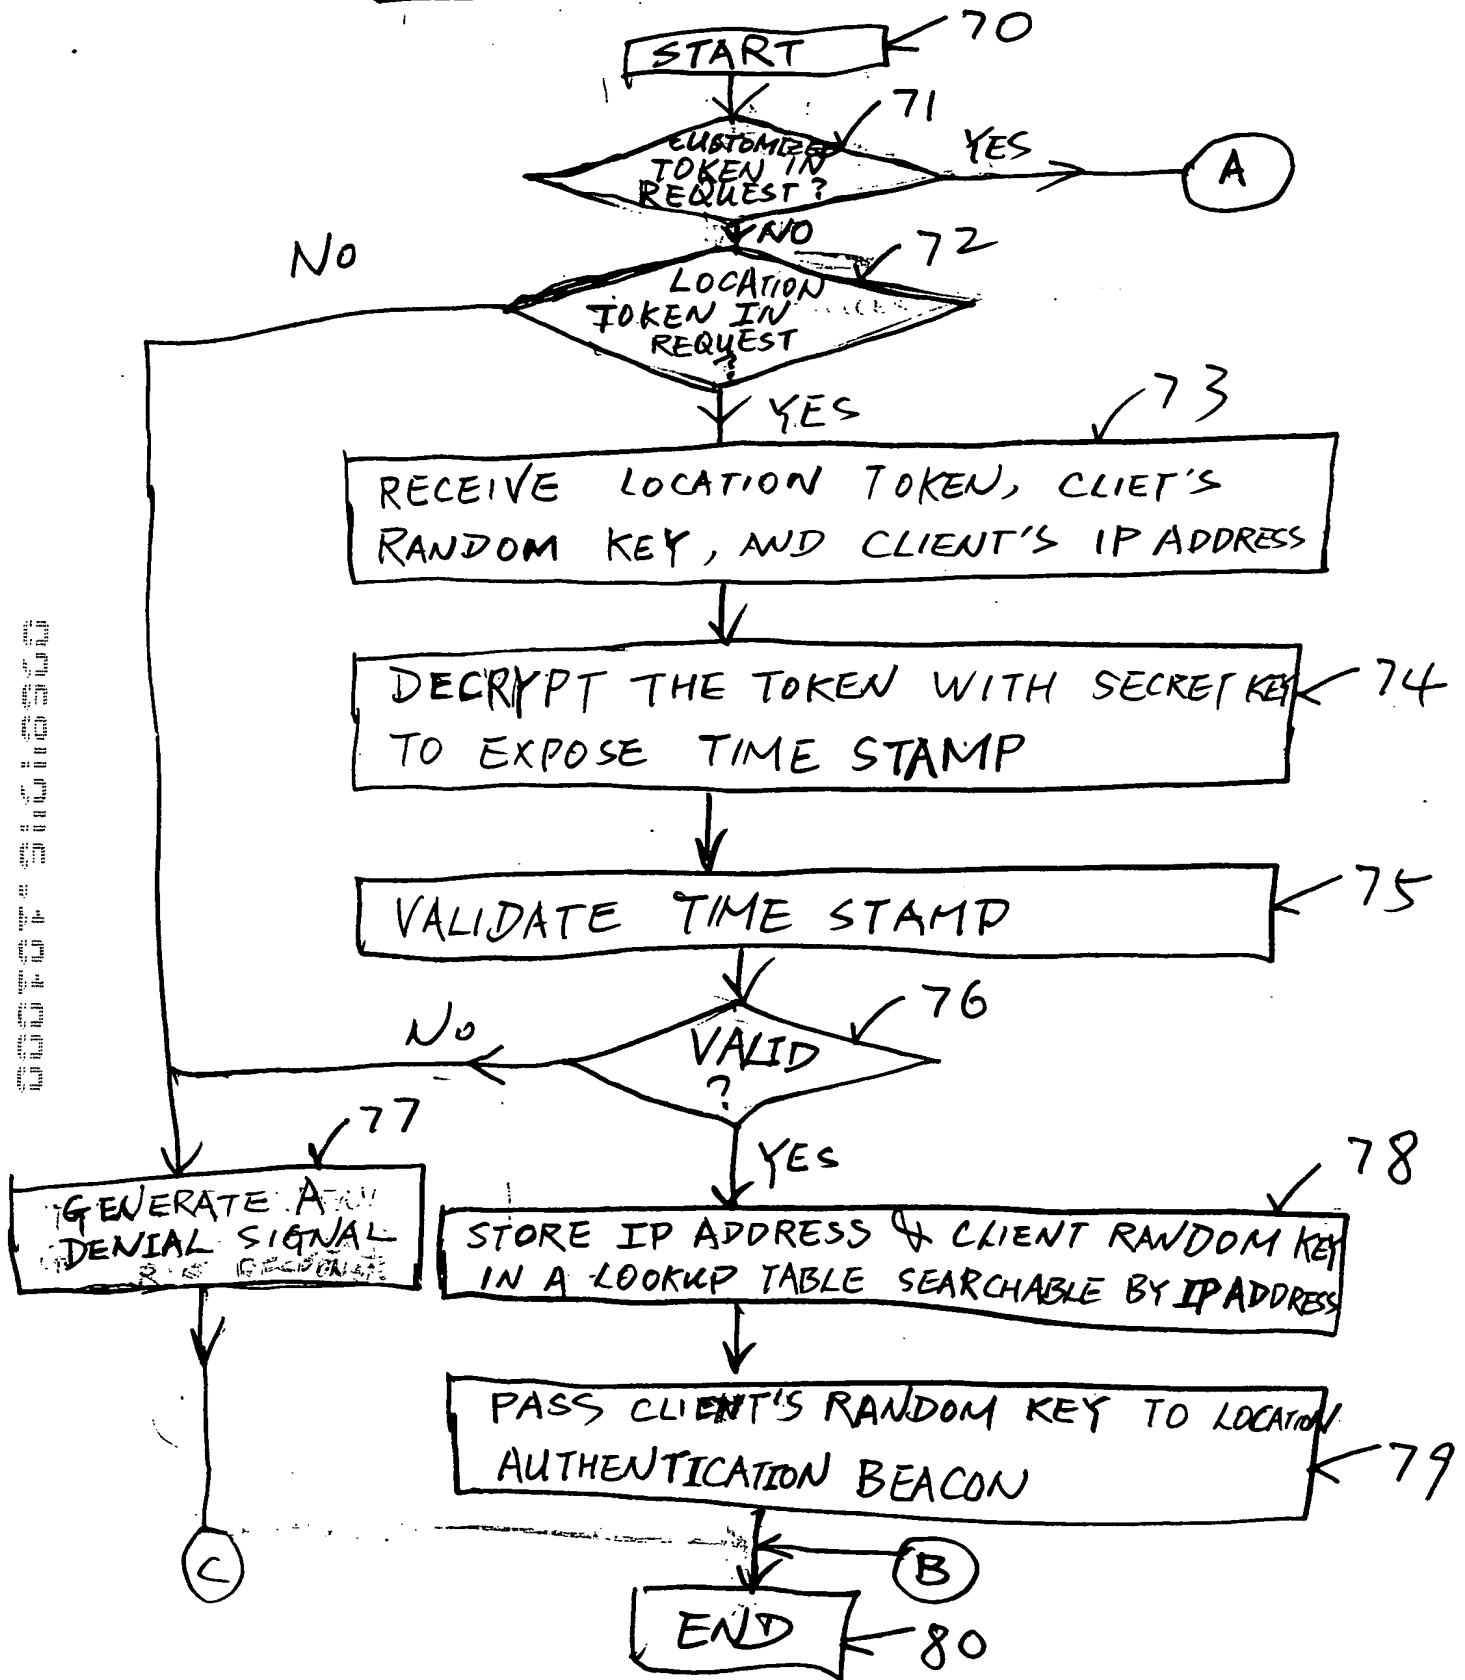 START
70
71
CUSTOMIZED
TOKEN IN
REQUEST?
YES
A
NO
72
No
LOCATION
TOKEN IN
REQUEST
?
YES
73
RECEIVE LOCATION TOKEN, CLIET'S
RANDOM KEY, AND CLIENT'S IP ADDRESS
DECRYPT THE TOKEN WITH SECRET KEY
TO EXPOSE TIME STAMP
74
VALIDATE TIME STAMP
75
No
VALID
?
76
YES
77
GENERATE A
DENIAL SIGNAL
78
STORE IP ADDRESS & CLIENT RANDOM KEY
IN A LOOKUP TABLE SEARCHABLE BY IP ADDRESS
PASS CLIENT'S RANDOM KEY TO LOCATION
AUTHENTICATION BEACON
79
C
B
END
80